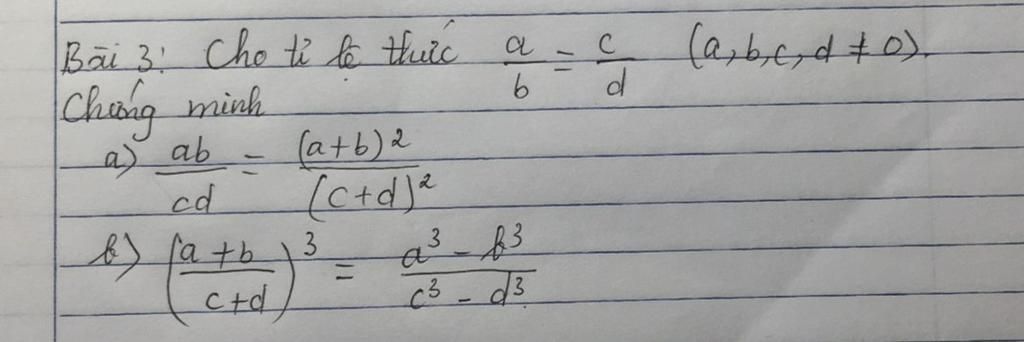 Bài 3: Cho tỉ lệ thức a/b = c/d (a,b,c,d ≠ 0).
Chứng minh
a) ab/cd = (a+b)²/(c+d)²
b) ((a+b)/(c+d))³ = (a³ - b³)/(c³ - d³)